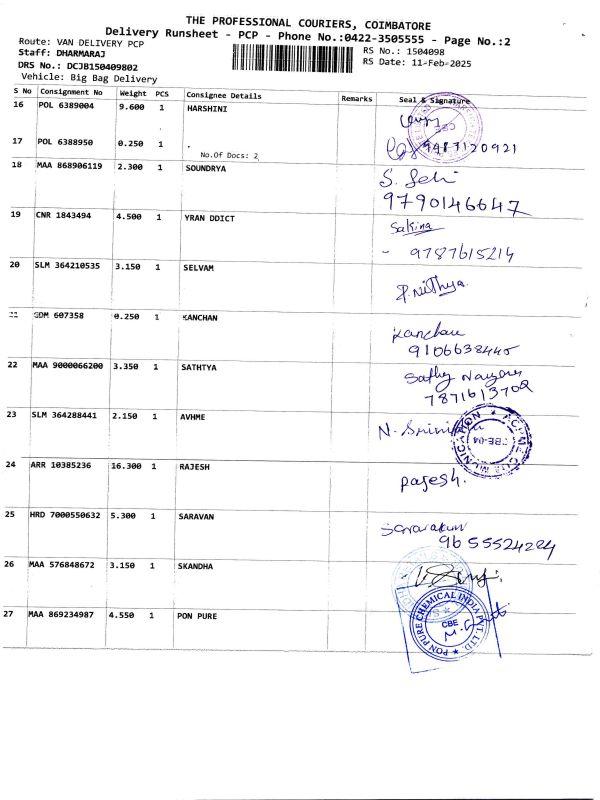 THE PROFESSIONAL COURIERS, COIMBATORE
Delivery Runsheet - PCP - Phone No.:0422-3505555 - Page No.:2
Route: VAN DELIVERY PCP
RS No.: 1504098
Staff: DHARMARAJ
RS Date: 11-Feb-2025
DRS No.: DCJB150409802
Vehicle: Big Bag Delivery
S No Consignment No Weight PCS Consignee Details Remarks Seal & Signature
16 POL 6389004 9.600 1 HARSHINI
CBE
17 POL 6388950 0.250 1 .
No.Of Docs: 2, 9487120921
18 MAA 868906119 2.300 1 SOUNDRYA S. Selvi
9790146647
19 CNR 1843494 4.500 1 YRAN DDICT Sakina
- 9787615214
20 SLM 364210535 3.150 1 SELVAM P. Nithya
GDM 607358 0.250 1 KANCHAN Kanchan
9106638445
22 MAA 9000066200 3.350 1 SATHTYA Sathy
7871613702
23 SLM 364288441 2.150 1 AVHME N. Srini
ACME COMMUNICATION
CBE-04
24 ARR 10385236 16.300 1 RAJESH Rajesh.
25 HRD 7000550632 5.300 1 SARAVAN
9655524224
26 MAA 576848672 3.150 1 SKANDHA
27 MAA 869234987 4.550 1 PON PURE
PON PURE CHEMICAL INDIA PVT. LTD.
CBE